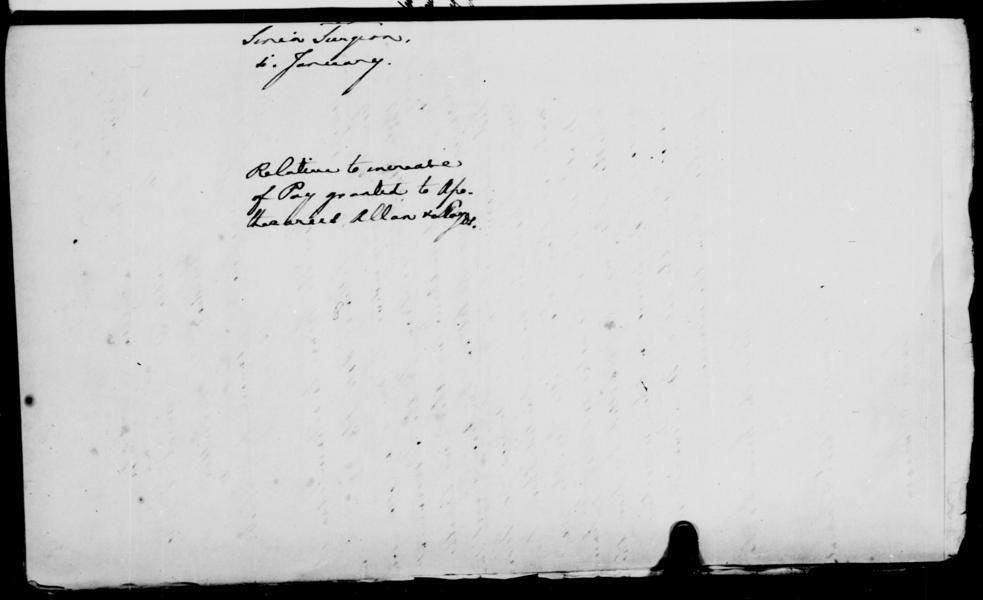 Senior Surgeon.
January.
Relative to increase
of Pay granted to Apo-
thecaries Allan &